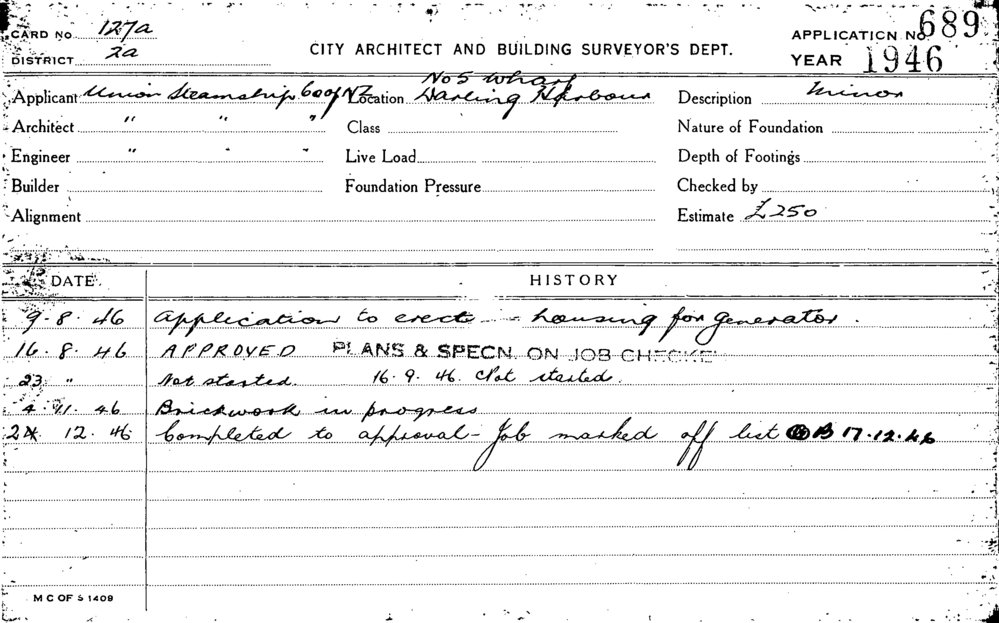 CARD NO 127a
DISTRICT 2a
CITY ARCHITECT AND BUILDING SURVEYOR'S DEPT.
APPLICATION NO 689
YEAR 1946
Applicant Union Steamship Co of NZ Location No 5 Wharf Darling Harbour Description Minor
Architect " " " Class Nature of Foundation
Engineer " " " Live Load Depth of Footings
Builder Foundation Pressure Checked by
Alignment Estimate £250
DATE. HISTORY
9.8.46 Application to erect housing for generator.
16.8.46 APPROVED PLANS & SPECN. ON JOB CHECKE
23 " Not started. 16.9.46. Not started.
4.11.46 Brickwork in progress
12.46 Completed to approval - Job marked off list B 17.12.46
M C OF S 1409